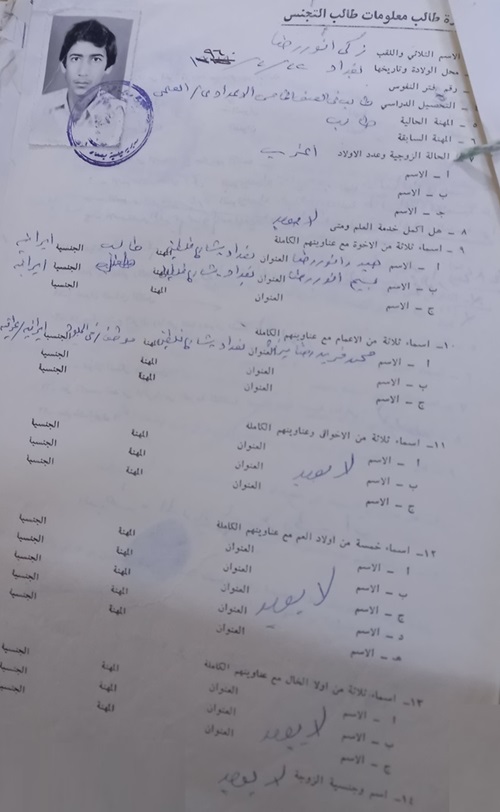 ـرة طالب معلومات طالب التجنس
١ـ الاسم الثلاثي واللقب زكي انور رضا
٢ـ محل الولادة وتاريخها بغداد
٣ـ رقم دفتر النفوس
٤ـ التحصيل الدراسي الصف الخامس الاعدادي / العلمي
٥ـ المهنة الحالية طالب
٦ـ المهنة السابقة
الحالة الزوجية وعدد الاولاد اعزب
أ ـ الاسم
ب ـ الاسم
جـ ـ الاسم
٨ ـ هل اكمل خدمة العلم ومتى لا يوجد
٩ ـ اسماء ثلاثة من الاخوة مع عناوينهم الكاملة
أ ـ الاسم انور رضا العنوان بغداد شارع فلسطين المهنة طالب الجنسية ايرانية
ب ـ الاسم انور رضا العنوان بغداد شارع فلسطين المهنة طفل الجنسية ايرانية
ج ـ الاسم العنوان المهنة الجنسية
١٠ـ اسماء ثلاثة من الاعمام مع عناوينهم الكاملة
أ ـ الاسم محمد فريد رضا العنوان بغداد شارع فلسطين المهنة موظف الجنسية
ب ـ الاسم العنوان المهنة الجنسية
ج ـ الاسم العنوان المهنة الجنسية
١١ـ اسماء ثلاثة من الاخوال وعناوينهم الكاملة
أ ـ الاسم العنوان المهنة الجنسية
ب ـ الاسم لا يوجد العنوان المهنة الجنسية
ج ـ الاسم العنوان المهنة الجنسية
١٢ـ اسماء خمسة من اولاد العم مع عناوينهم الكاملة
أ ـ الاسم العنوان المهنة الجنسية
ب ـ الاسم العنوان المهنة الجنسية
ج ـ الاسم لا يوجد العنوان المهنة الجنسية
د ـ الاسم العنوان المهنة الجنسية
هـ ـ الاسم العنوان المهنة الجنسية
١٣ـ اسماء ثلاثة من اولا الخال مع عناوينهم الكاملة
أ ـ الاسم العنوان المهنة الجنسية
ب ـ الاسم لا يوجد العنوان المهنة الجنسية
ج ـ الاسم العنوان المهنة الجنسية
١٤ـ اسم وجنسية الزوجة لا يوجد